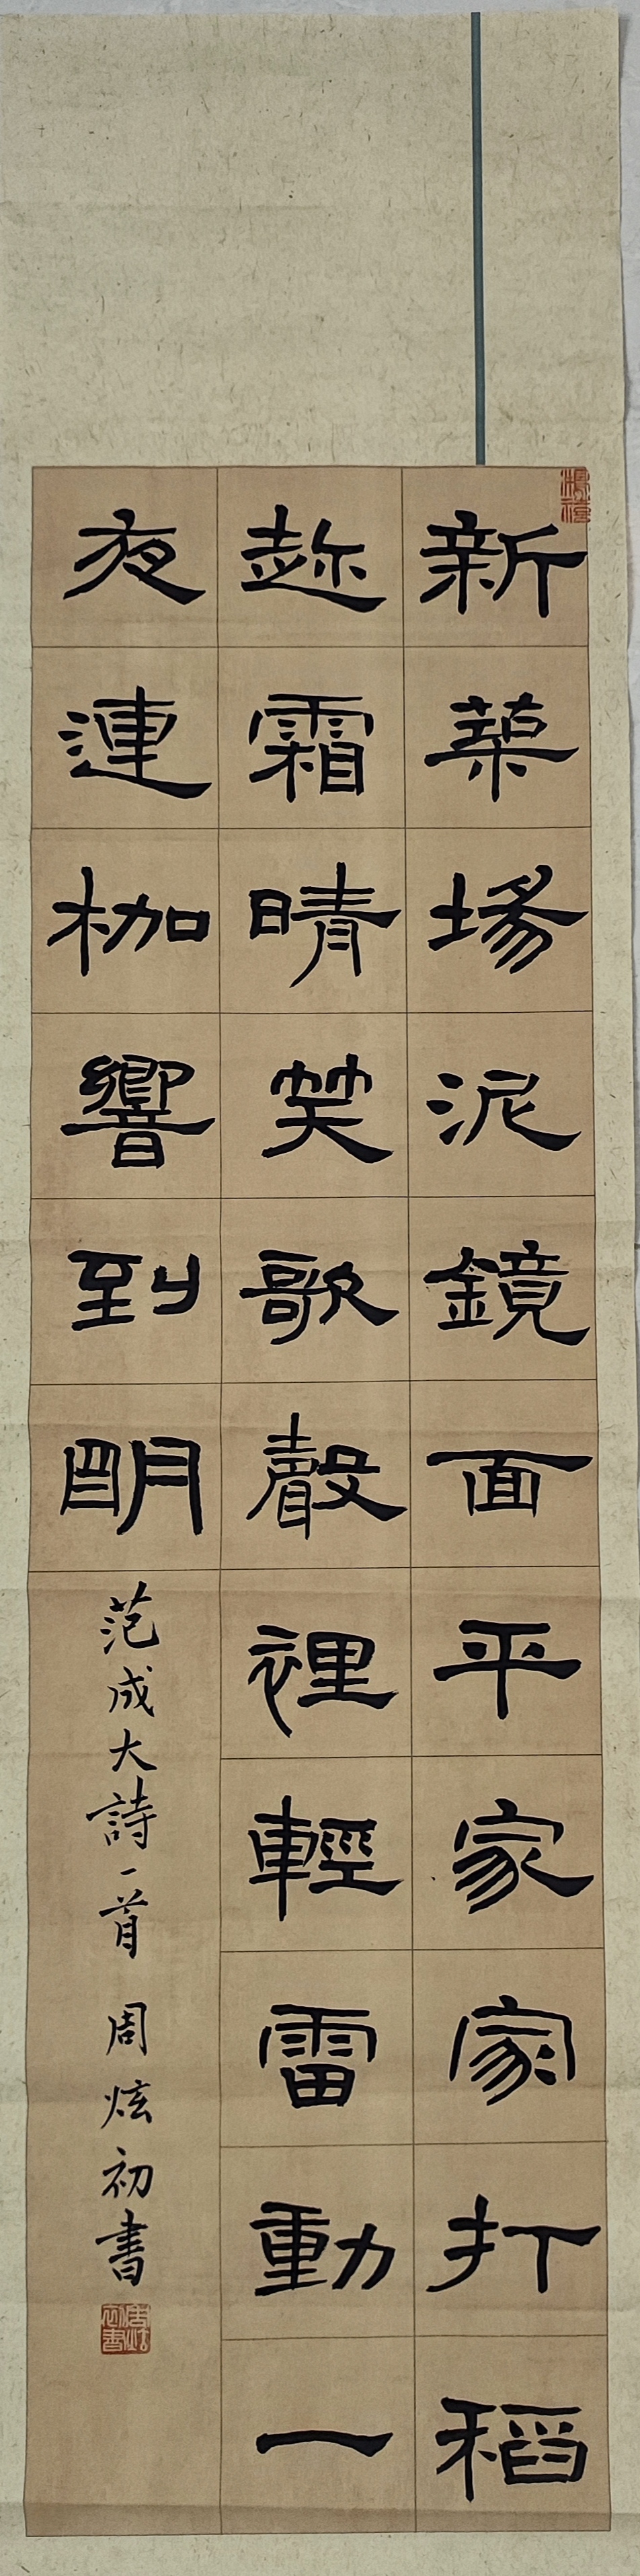 新築場泥鏡面平家家打稻
趂霜晴笑歌聲裡輕雷動一
夜連枷響到明
范成大詩一首 周炫初書